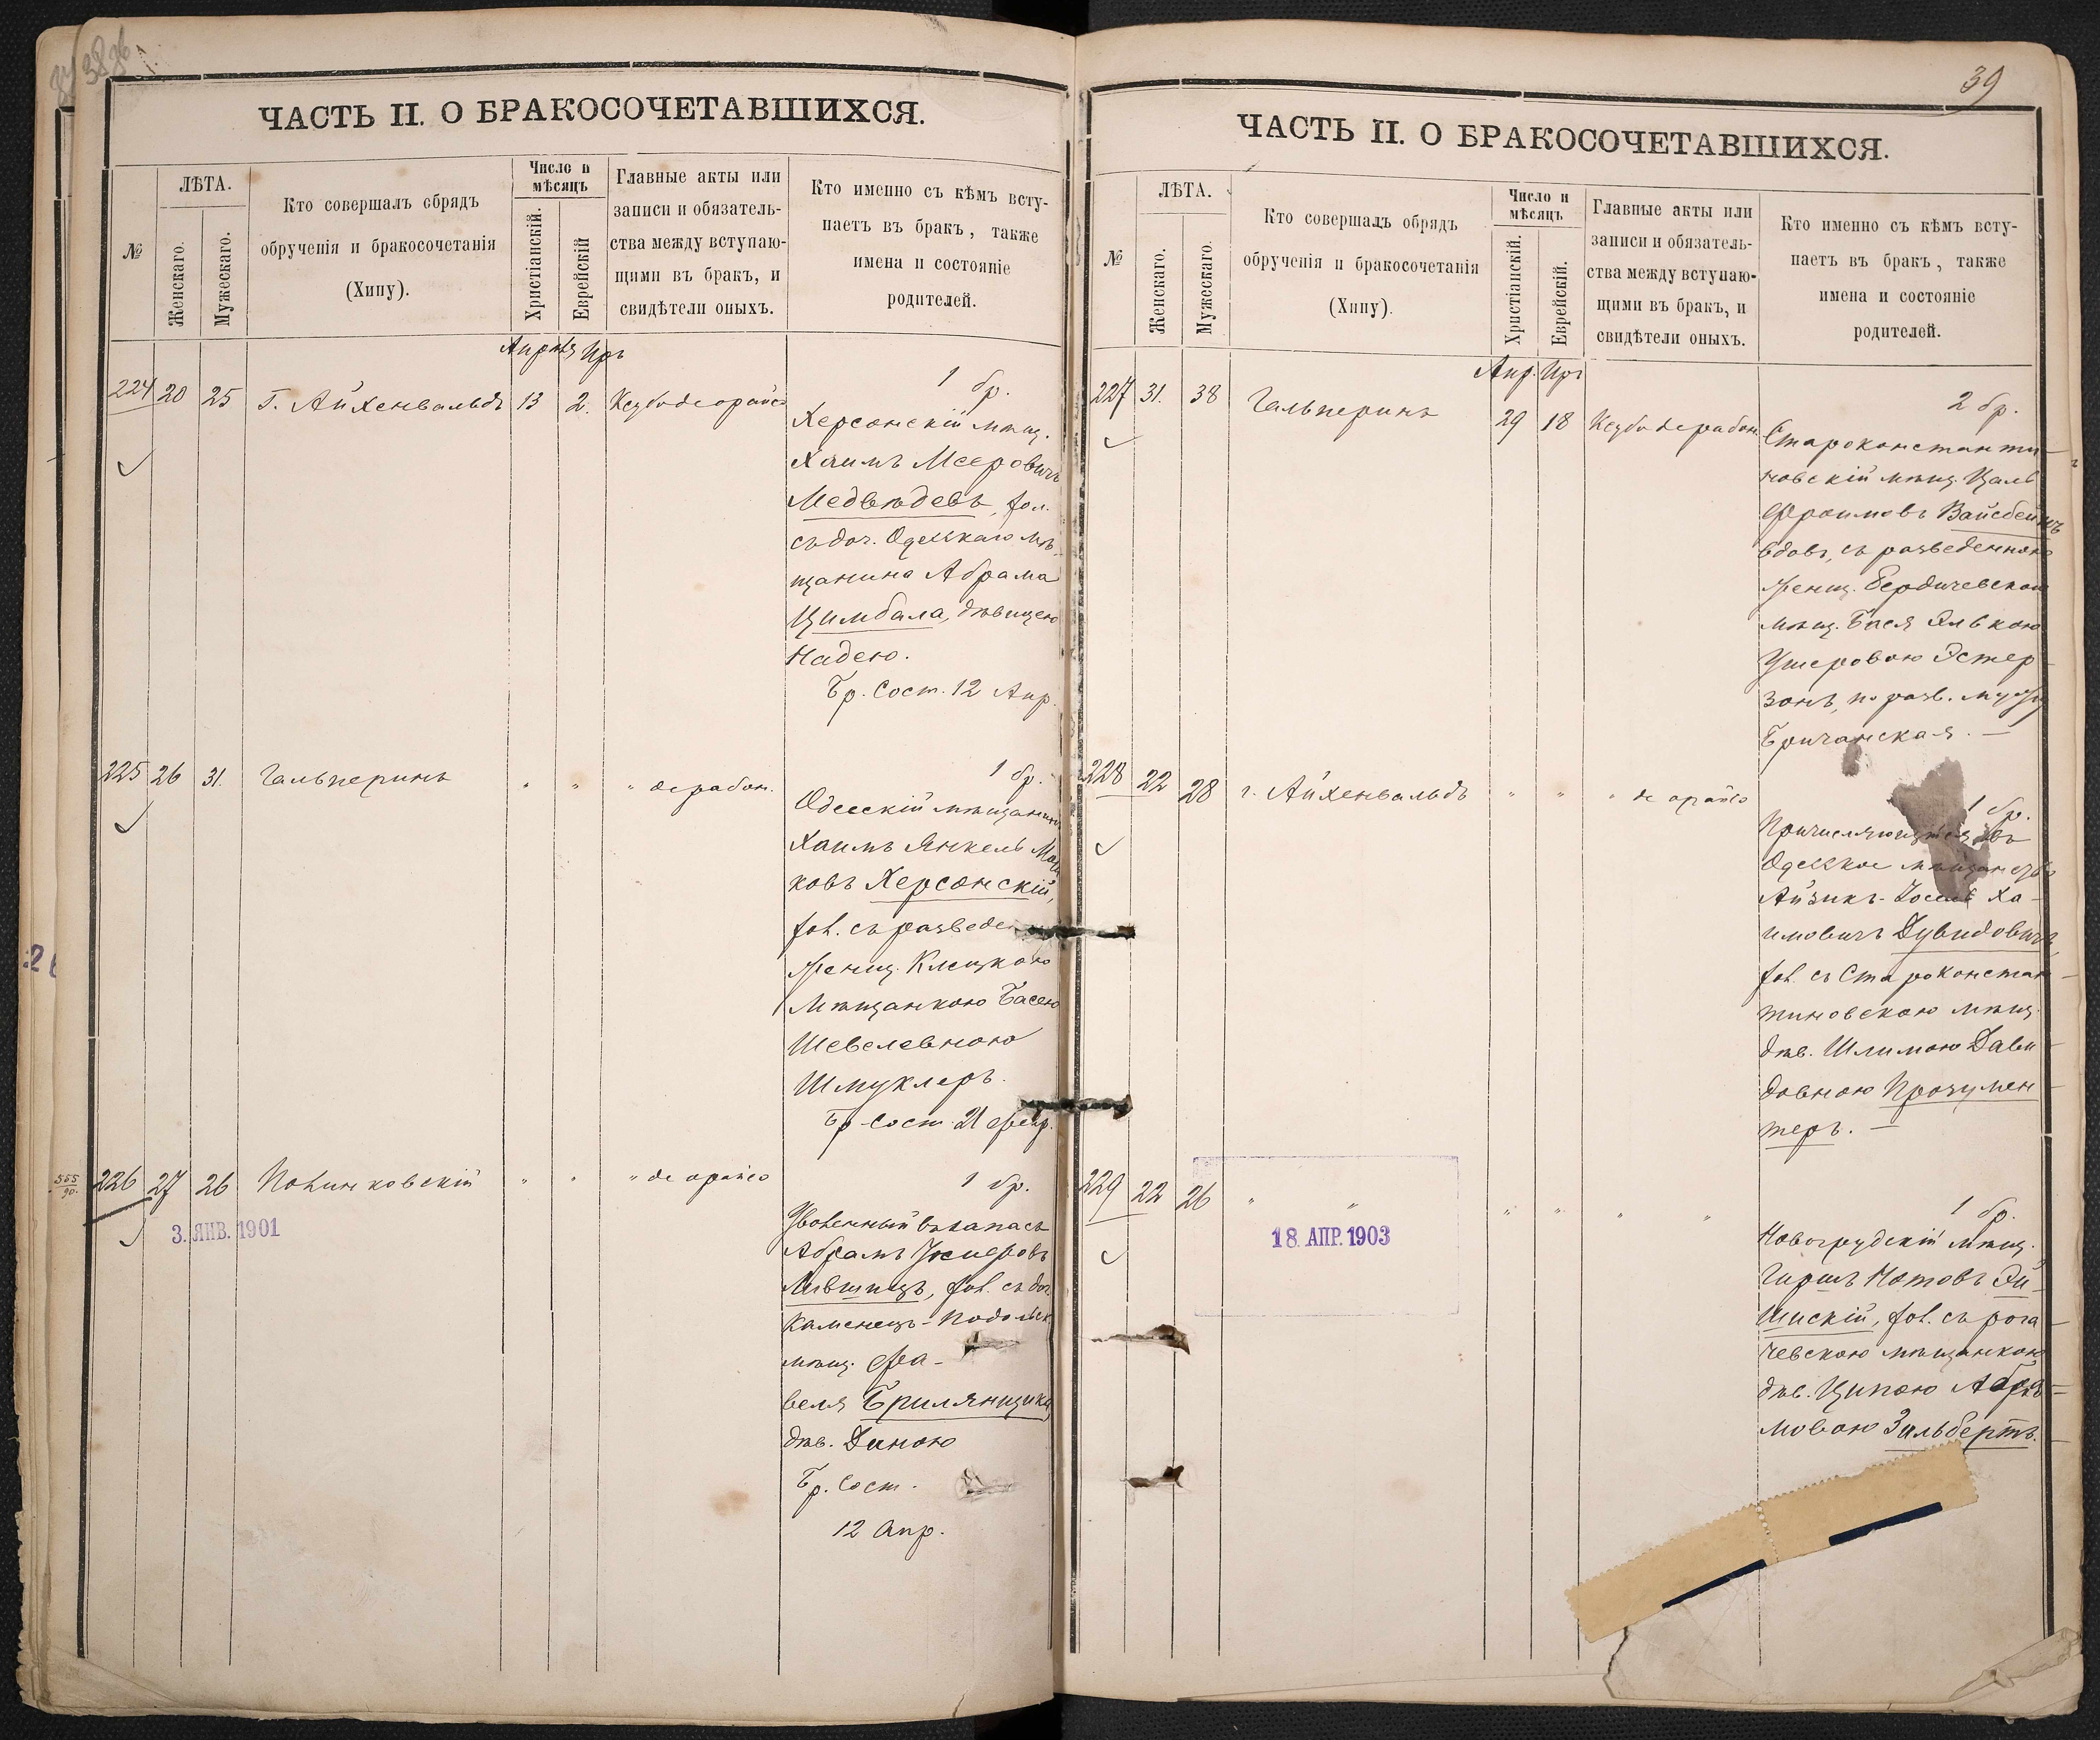 38
ЧАСТЬ II. О БРАКОСОЧЕТАВШИХСЯ.
№
ЛѢТА.
Женскаго.
Мужескаго.
Кто совершалъ обрядъ
обрученія и бракосочетанія
(Хипу).
Число и
мѣсяцъ
Христіанскій.
Еврейскій
Главные акты или
записи и обязатель-
ства между вступаю-
щими въ бракъ, и
свидѣтели оныхъ.
Кто именно съ кѣмъ всту-
паетъ въ бракъ, также
имена и состояніе
родителей.
Апрѣля Иръ
224 20 25 Г. Айхенвальдъ 13 2.
1 бр.
Херсонскій мѣщ.
Хаимъ Мееровичъ
Медвѣдевъ, хол.
съ доч. Одесскаго мѣ-
щанина Абрама
Цимбала, дѣвицею
Надею.
Бр. Сост. 12 Апр.
225 26 31. Гальперинъ " " " дерабон.
1 бр.
Одесскій мѣщанинъ
Хаимъ Янкель
ковъ Херсонскій,
хол. съ разведен
женщ. Клецкою
Мѣщанкою Басею
Шевелевною
Шмуклеръ.
Бр. Сост. 21
555
90.
226 27 26 " " " де орайсо
3. ЯНВ. 1901
1 бр.
Уволенный въ запасъ
Абрамъ
Лившицъ, хол. съ доч.
Каменецъ-Подольск
мѣщ. Фа-
веля Брилянщика
дѣв. Диною
Бр. Сост.
12 Апр.
39
ЧАСТЬ II. О БРАКОСОЧЕТАВШИХСЯ.
№
ЛѢТА.
Женскаго.
Мужескаго.
Кто совершалъ обрядъ
обрученія и бракосочетанія
(Хипу).
Число и
мѣсяцъ
Христіанскій.
Еврейскій.
Главные акты или
записи и обязатель-
ства между вступаю-
щими въ бракъ, и
свидѣтели оныхъ.
Кто именно съ кѣмъ всту-
паетъ въ бракъ, также
имена и состояніе
родителей.
Апр. Иръ
227 31. 38 Гальперинъ 29 18 Ксубо дерабон
2 бр.
Староконстанти-
новскій мѣщ. Цаль
Фроимовъ Вайсбейнъ
вдов, съ разведенною
женщ. Бердичевскою
мѣщ. Бася Элькою
Ушеровою Эстер-
зонъ, по разв. мужу
Бричанская. —
228 22 28 г. Айхенвальдъ " " " де орайсо
1 бр.
Причисляющійся въ
Одесское мѣщанство
Айзикъ-Іосель Ха-
имовичъ Дувидовичъ,
хол. съ Староконстан-
тиновскою мѣщ.
дѣв. Шлимою Дави-
довною Прозумен-
теръ. —
229 22 26 " " " " " "
18. АПР. 1903
1 бр.
Новогрудскій мѣщ.
Гиршъ Нотовъ Эй-
шискій, хол. съ рога-
чевскою мѣщанкою
дѣв. Ципою Абра-
мовою Зильбертъ.